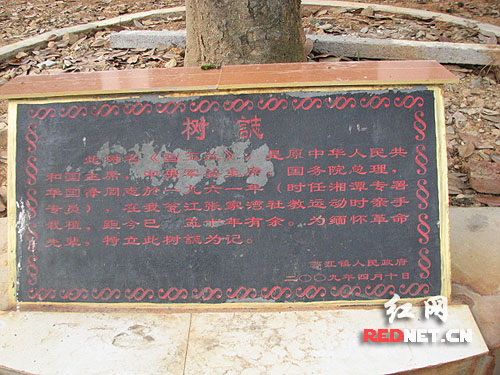 树誌
此树名《 》，是原中华人民共
和国主席、中央军委主席、国务院总理，
华国锋同志於一九六一年（时任湘潭专署
专员），在我 江张家湾社教运动时亲手
栽植，距今已 十年有余。为缅怀革命
先辈，特立此树誌为记。
江镇人民政府
二〇〇九年四月十日
红网
REDNET.CN